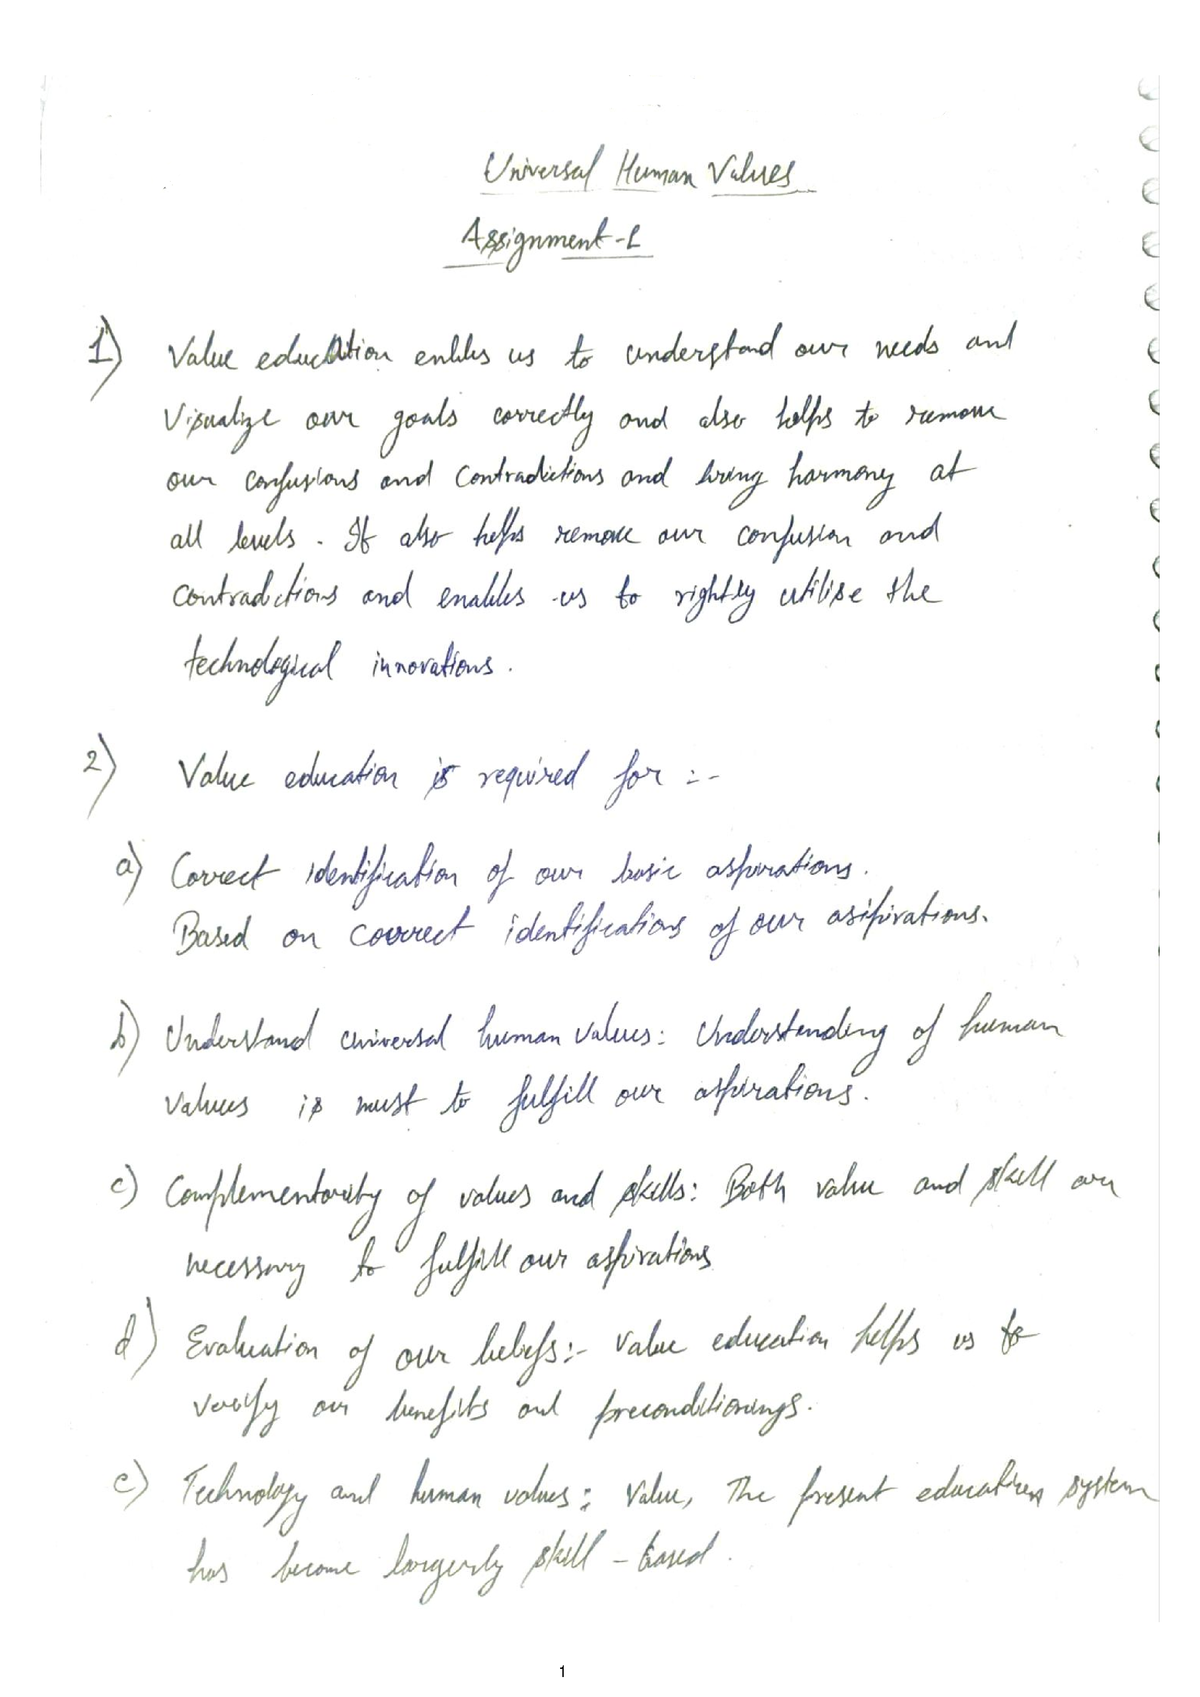 Universal Human Values
Assignment-1
1) Value education enbles us to understand our needs and
Visualize our goals correctly and also helps to remove
our confusions and Contradictions and bring harmony at
all levels. It also helps remove our confusion and
contradictions and enables us to rightly utilise the
technological innovations.
2) Value education is required for :-
a) Correct identification of our basic aspirations.
Based on correct identifications of our asipirations.
b) Understand universal human values: Understanding of human
values is must to fulfill our aspirations.
c) Complementority of values and skills: Both value and skill are
necessary to fulfill our aspirations
d) Evaluation of our beliefs:- Value education helps us to
verify our benefits and preconditionings.
e) Technology and human values: Value, The present education system
has become largerly skill-based.
1